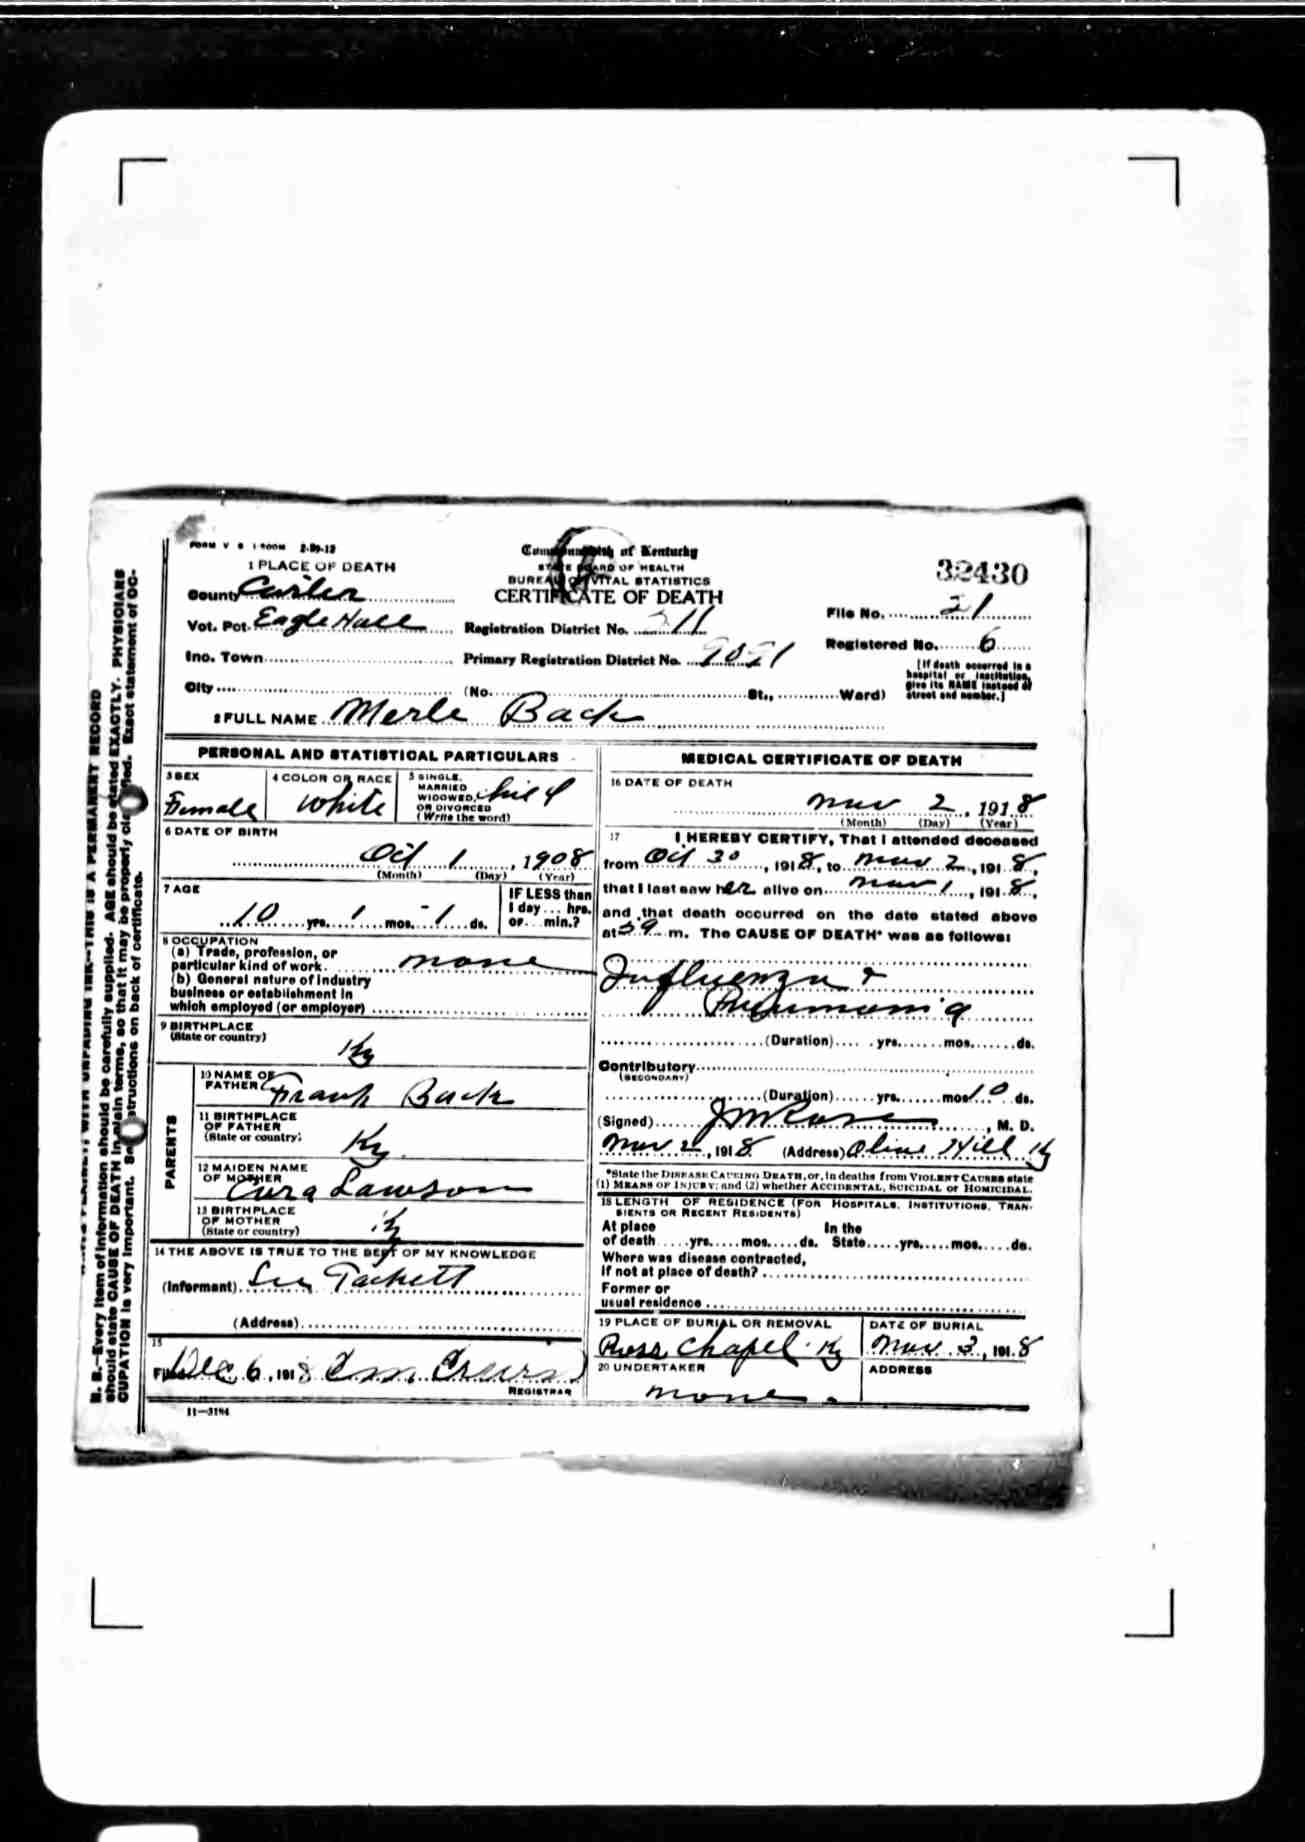 FORM V S 1-500M 2-29-12
Commonwealth of Kentucky
STATE BOARD OF HEALTH
BUREAU OF VITAL STATISTICS
CERTIFICATE OF DEATH
32430
1 PLACE OF DEATH
County Carter
Vot. Pct. Eagle Hall
Inc. Town
City
Registration District No. 311
Primary Registration District No.
File No. 21
Registered No. 6
[If death occurred in a
hospital or institution,
give its NAME instead of
street and number.]
(No. St., Ward)
2 FULL NAME Merle Back
PERSONAL AND STATISTICAL PARTICULARS
3 SEX
Female
4 COLOR OR RACE
White
5 SINGLE,
MARRIED
WIDOWED,
OR DIVORCED
(Write the word)
child
6 DATE OF BIRTH
Oct 1, 1908
(Month) (Day) (Year)
7 AGE
10 yrs. 1 mos. 1 ds.
IF LESS than
1 day ... hrs.
or ... min.?
8 OCCUPATION
(a) Trade, profession, or
particular kind of work. none
(b) General nature of industry
business or establishment in
which employed (or employer)
9 BIRTHPLACE
(State or country)
Ky
PARENTS
10 NAME OF
FATHER Frank Back
11 BIRTHPLACE
OF FATHER
(State or country)
Ky.
12 MAIDEN NAME
OF MOTHER
Cura Lawson
13 BIRTHPLACE
OF MOTHER
(State or country)
Ky
14 THE ABOVE IS TRUE TO THE BEST OF MY KNOWLEDGE
(Informant) Tackett
(Address)
15
Filed Dec 6, 1918
REGISTRAR
11—3184
MEDICAL CERTIFICATE OF DEATH
16 DATE OF DEATH
Nov 2, 1918
(Month) (Day) (Year)
17 I HEREBY CERTIFY, That I attended deceased
from Oct 30, 1918, to Nov 2, 1918,
that I last saw her alive on Nov 1, 1918,
and that death occurred on the date stated above
at m. The CAUSE OF DEATH* was as follows:
Influenza &
Pneumonia
(Duration) yrs. mos. ds.
Contributory
(SECONDARY)
(Duration) yrs. mos 10 ds.
(Signed) J M Rose, M. D.
Nov 2, 1918 (Address) Olive Hill Ky
*State the DISEASE CAUSING DEATH, or, in deaths from VIOLENT CAUSES state
(1) MEANS OF INJURY; and (2) whether ACCIDENTAL, SUICIDAL or HOMICIDAL.
18 LENGTH OF RESIDENCE (FOR HOSPITALS, INSTITUTIONS, TRAN-
SIENTS OR RECENT RESIDENTS)
At place In the
of death yrs. mos. ds. State yrs. mos. ds.
Where was disease contracted,
if not at place of death?
Former or
usual residence
19 PLACE OF BURIAL OR REMOVAL
Ross Chapel Ky
DATE OF BURIAL
Nov 3, 1918
20 UNDERTAKER
none
ADDRESS
N. B.—Every item of information should be carefully supplied. AGE should be stated EXACTLY. PHYSICIANS
should state CAUSE OF DEATH in plain terms, so that it may be properly classified. Exact statement of OC-
CUPATION is very important. See instructions on back of certificate.
WITH UNFADING INK—THIS IS A PERMANENT RECORD